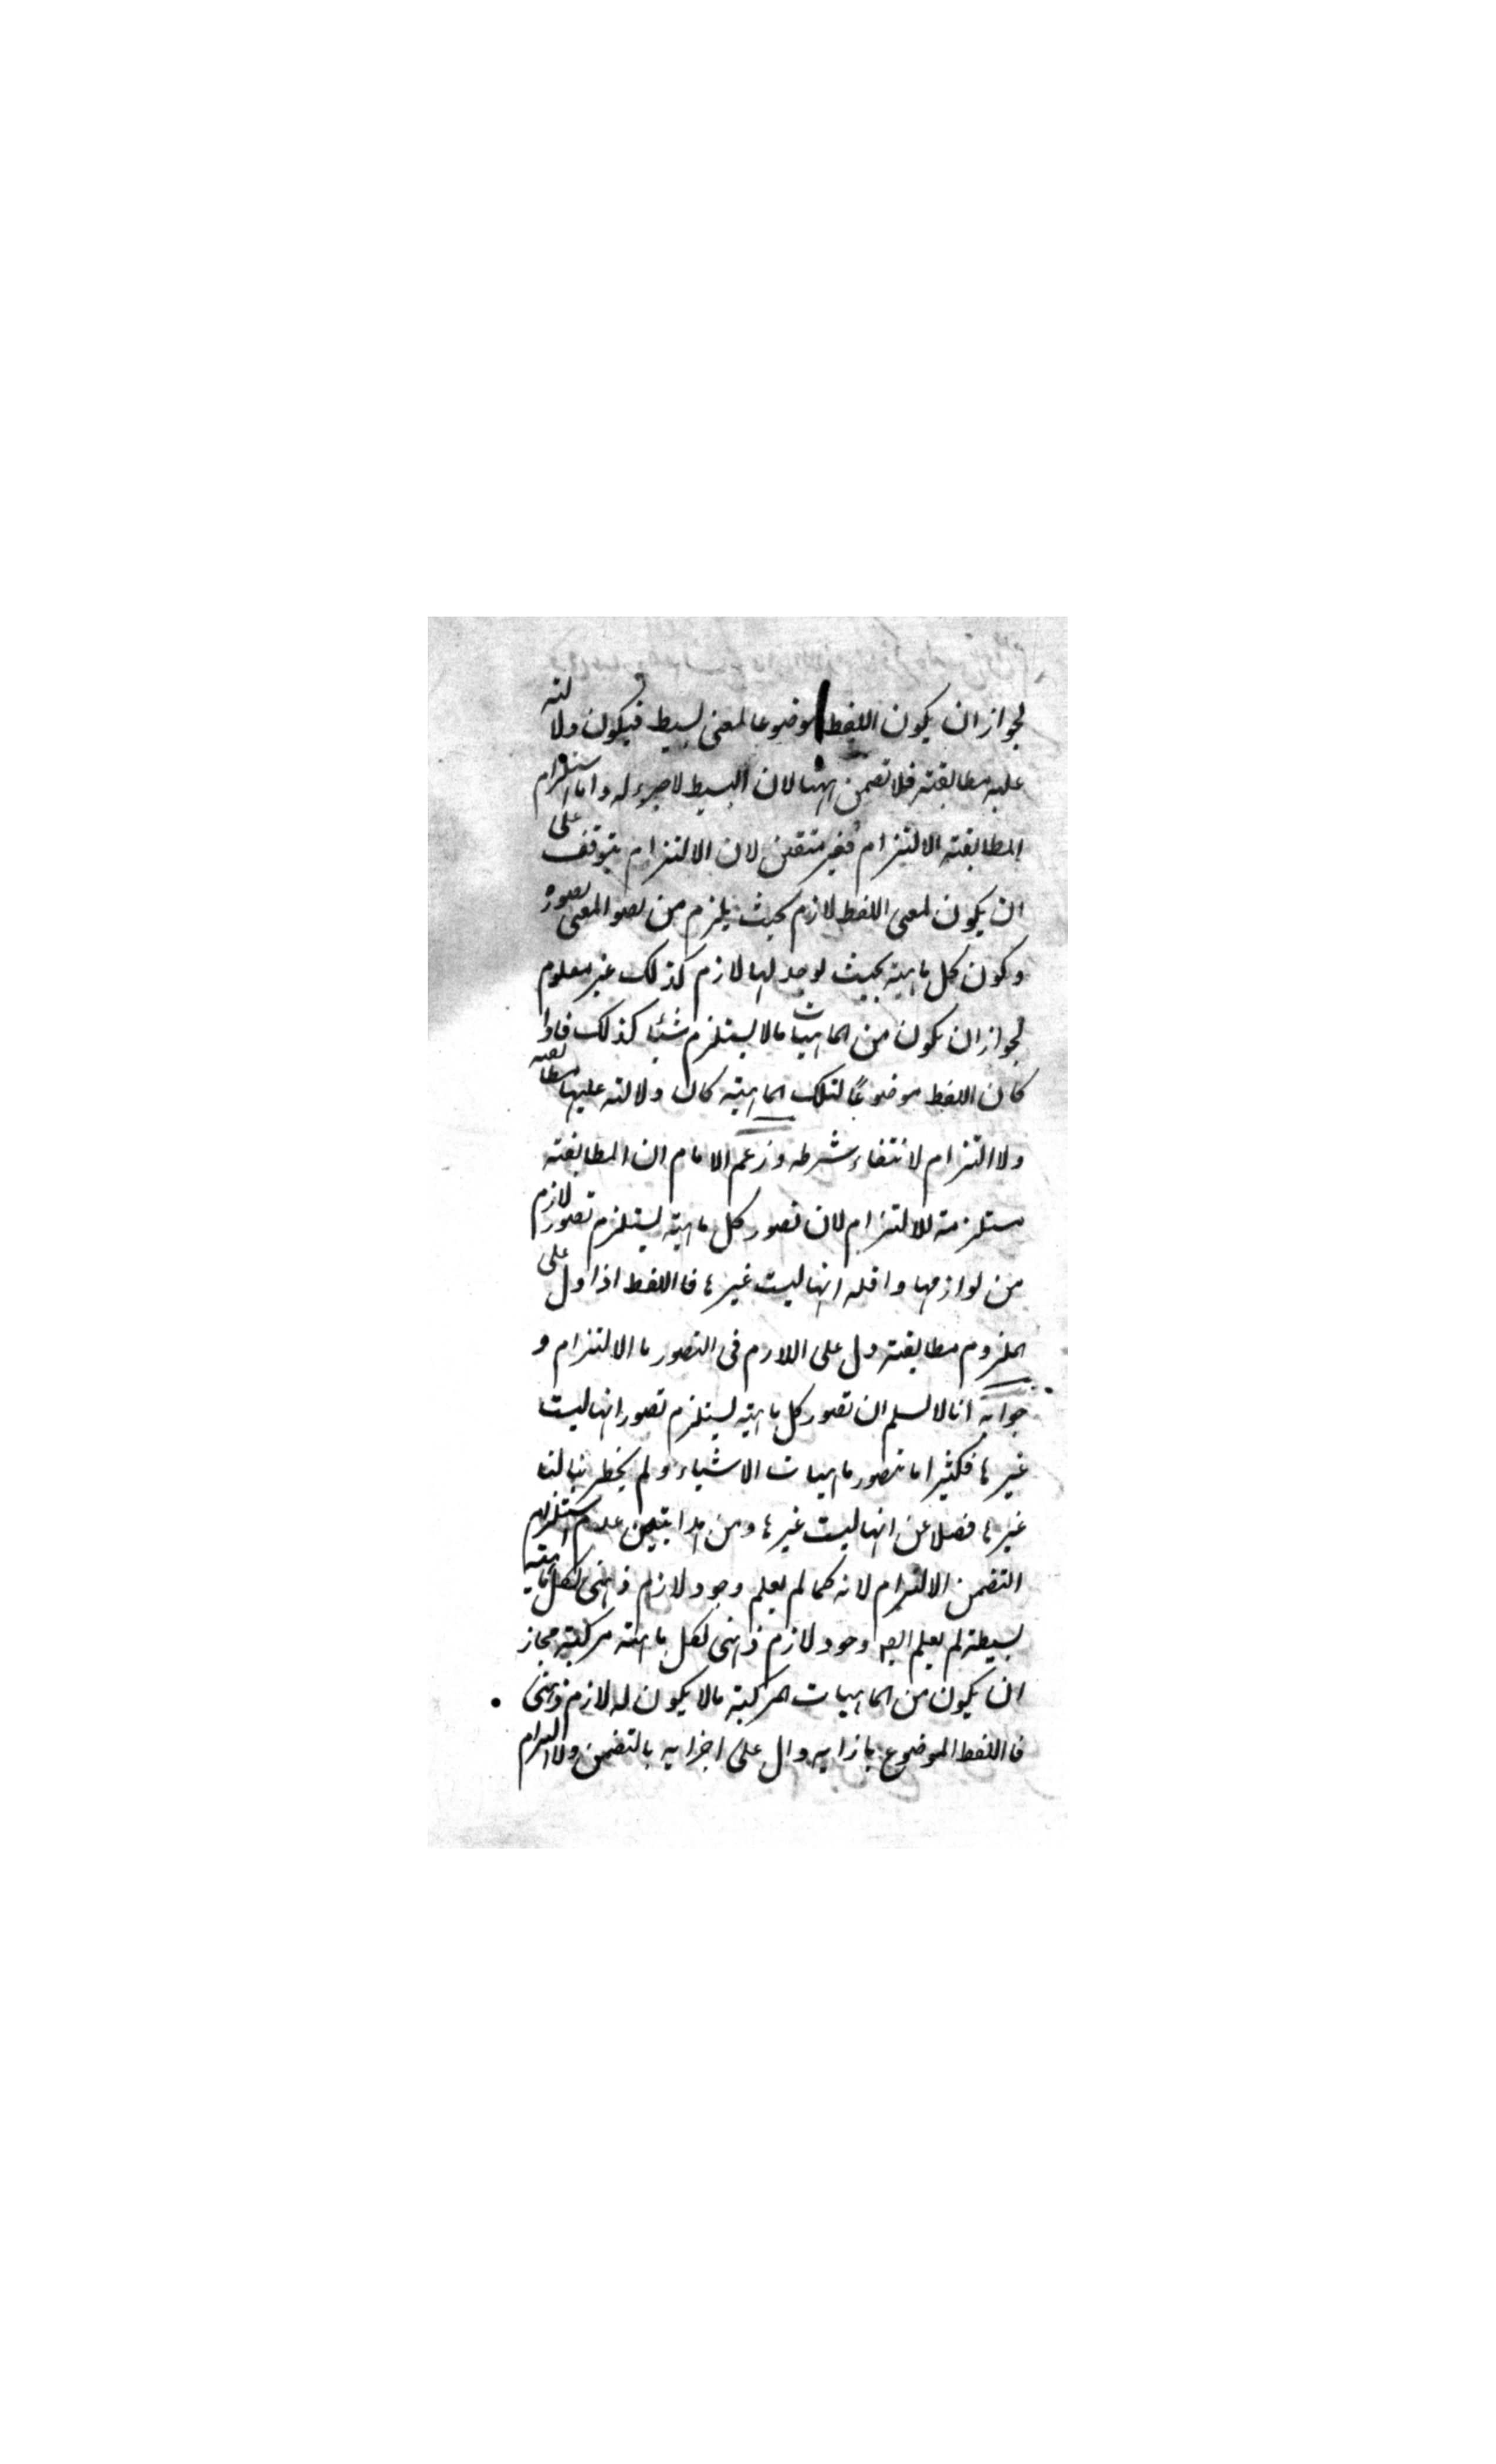 لجواز ان يكون اللفظ موضوعا لمعنى بسيط فيكون دلالته
عليه مطابقته فلا تضمن ههنا لان البسيط لا جزء له واما استلزام
المطابقته الالتزام فغير متقن لان الالتزام يتوقف على
ان يكون لمعنى اللفظ لازم بحيث يلزم من تصور المعنى تصوره
وكون كل ماهيته بحيث يوجد لها لازم كذلك غير معلوم
لجواز ان يكون من الماهيات ما لا يستلزم شئيا كذلك فاذا
كان اللفظ موضوعًا لتلك الماهيته كان دلالته عليها مطابقته
ولا التزام لانتفاء شرطه وزعم الامام ان المطابقته
مستلزمته للالتزام لان تصور كل ماهيته يستلزم تصور لازم
من لوازمها واقله انها ليست غيرها فااللفظ اذا دل على
الملزوم مطابقته دل على اللازم فى التصور باالالتزام و
جوابه انا لا نسلم ان تصور كل ماهيته يستلزم تصور انها ليست
غيرها فكثيرا ما نتصور ماهيات الاشياء ولم يخطر ببالنا
غيرها فضلا عن انها ليست غيرها ومن هذا تبين عدم استلزام
التضمن الالتزام لانه كما لم يعلم وجود لازم ذهنى لكل ماهيته
بسيطة لم يعلم ايضا وجود لازم ذهنى لكل ماهيته مركبته مجاز
ان يكون من الماهيات المركبته ما لا يكون له لازم ذهنى
فااللفظ الموضوع بازايه دال على اجزايه بالتضمن ولا التزام